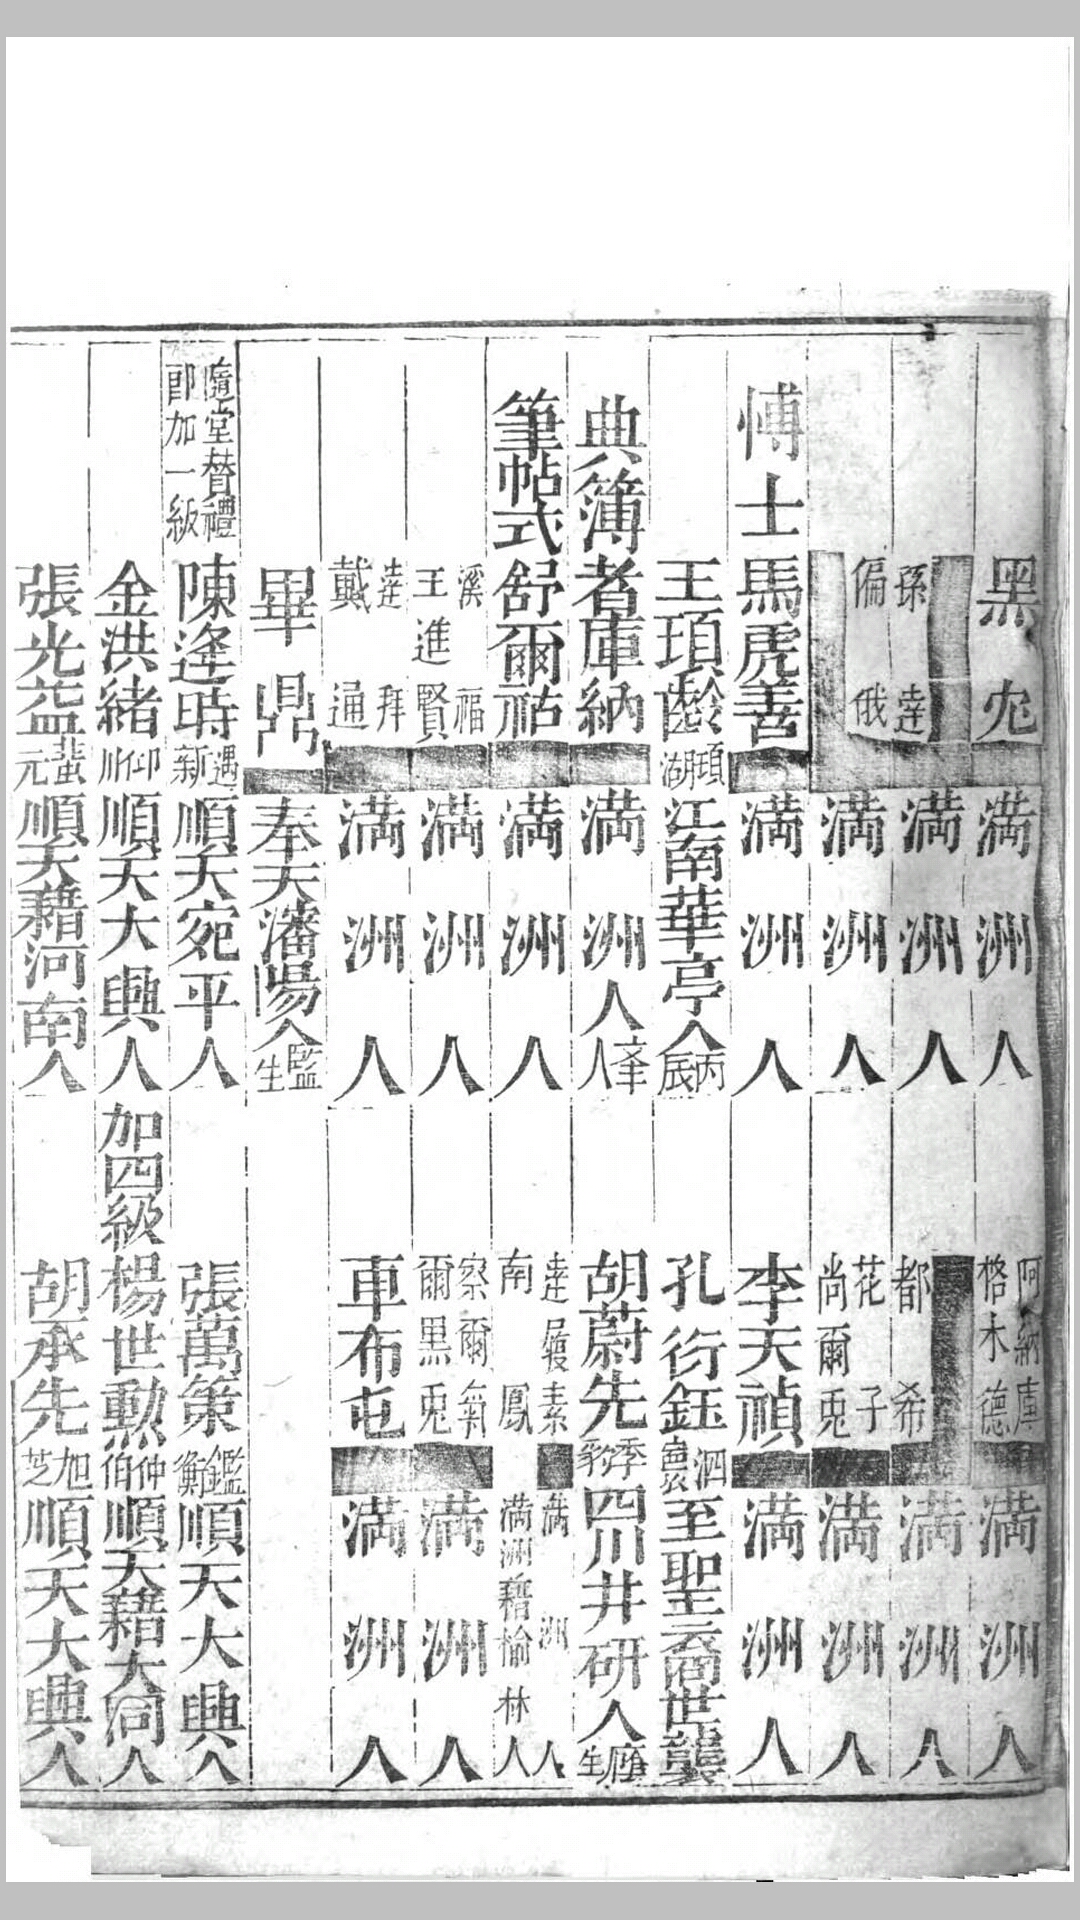 黑 尣 満洲人 阿納庫 格木德 満洲人
孫達 満洲人 都希 満洲人
偏俄 満洲人 花子 尚爾兎 満洲人
博士 馬虎善 満洲人 李天禎 満洲人
王頊齡 瑁湖 江南華亭人 丙辰 孔衍鈺 泗 至聖裔世襲
典簿 者庫納 満洲人 人 胡蔚先 季豹 四川井研人 廕生
筆帖式 舒爾祜 満洲人 達履素 満洲人 南鳳 満洲籍榆林人
溪福 王進賢 満洲人 察爾氣 爾黒兎 満洲人
達拜 戴通 満洲人 車布屯 満洲人
畢鼎 奉天瀋陽人 監生
隨堂賛禮郎加一級 陳逢時 遇新 順天宛平人 張萬策 鑑衡 順天大興人
金洪緒 仰川 順天大興人 加四級 楊世勲 仲伯 順天籍大同人
張光益 元 順天籍河南人 胡承先 旭芝 順天大興人